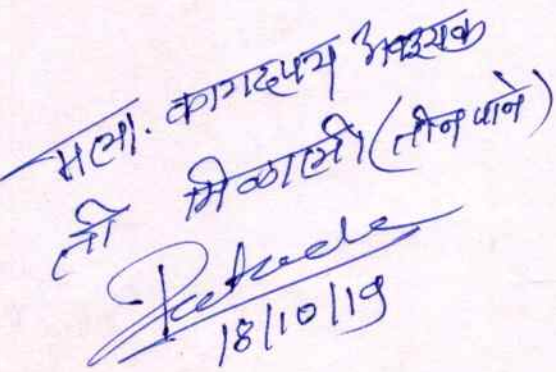 मला. कागदपत्र आवश्यक
ती मिळाली (तीन पाने)
18/10/19